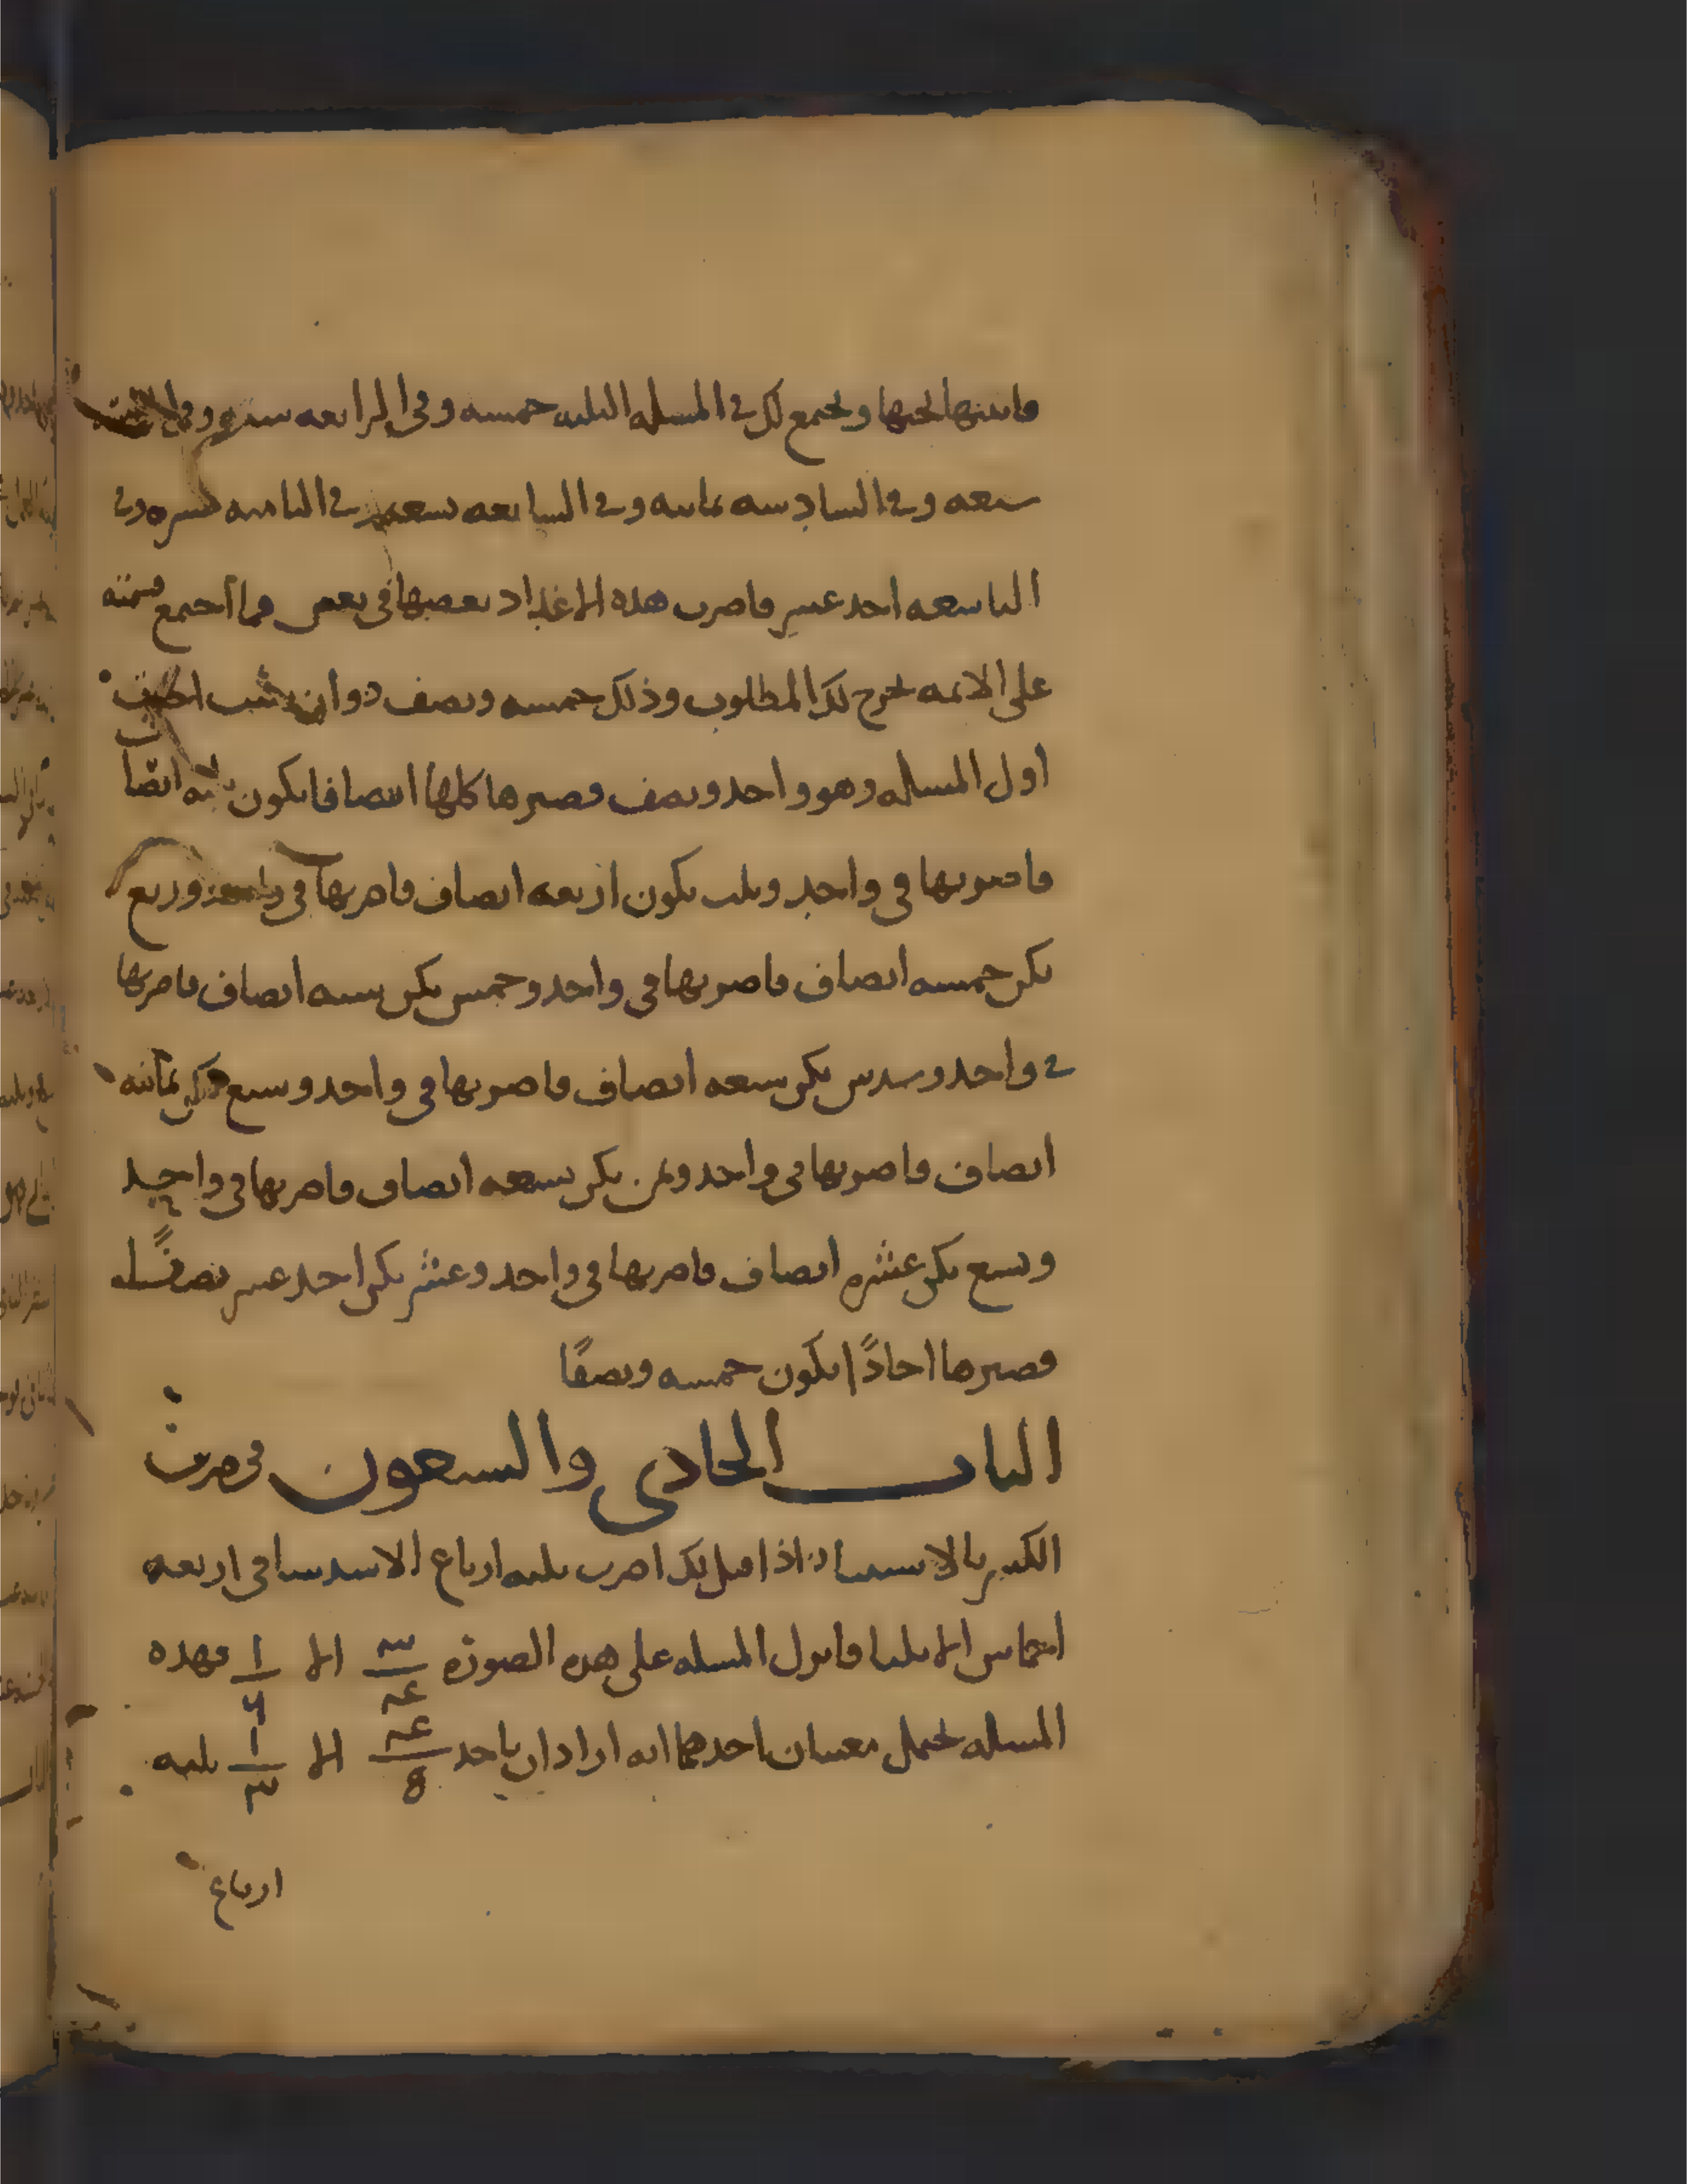 فاثبتها تحتها ويجتمع لك في المسله الثلثه خمسه وفي الرابعه سته وفي
سبعه وفي السادسه ثمانيه وفي السابعه تسعه وفي الثامنه عشره وفي
التاسعه احد عشر فاضرب هذه الاعداد بعضها في بعض فما اجتمع قسمته
على الائمه يخرج لك المطلوب وذلك خمسه ونصف وان شئت
اول المسله وهو واحد ونصف فصيرها كلها انصافا يكون ثلثه انصا
فاضربها في واحد وثلث يكون اربعه انصاف فاضربها في واحد وربع
يكن خمسه انصاف فاضربها في واحد وخمس يكن سته انصاف فاضربها
في واحد وسدس يكن سبعه انصاف فاضربها في واحد وسبع يكن ثمانيه
انصاف فاضربها في واحد وثمن يكن تسعه انصاف فاضربها في واحد
وتسع يكن عشره انصاف فاضربها في واحد وعشر يكن احد عشر نصفًا
فصيرها احادًا يكون خمسه ونصفًا
الباب الحادي والسبعون في ضرب
الكسير بالاستثناء اذا قيل لك اضرب ثلثه ارباع الا سدسا في اربعه
اخماس الا ثلثا فانزل المسله على هذه الصورة ٣/٤ الا ١/٦ فهذه
المسله تحتمل معنيان احدهما انه اراد ان ياخذ ٤/٥ الا ١/٣ ثلثه
ارباع